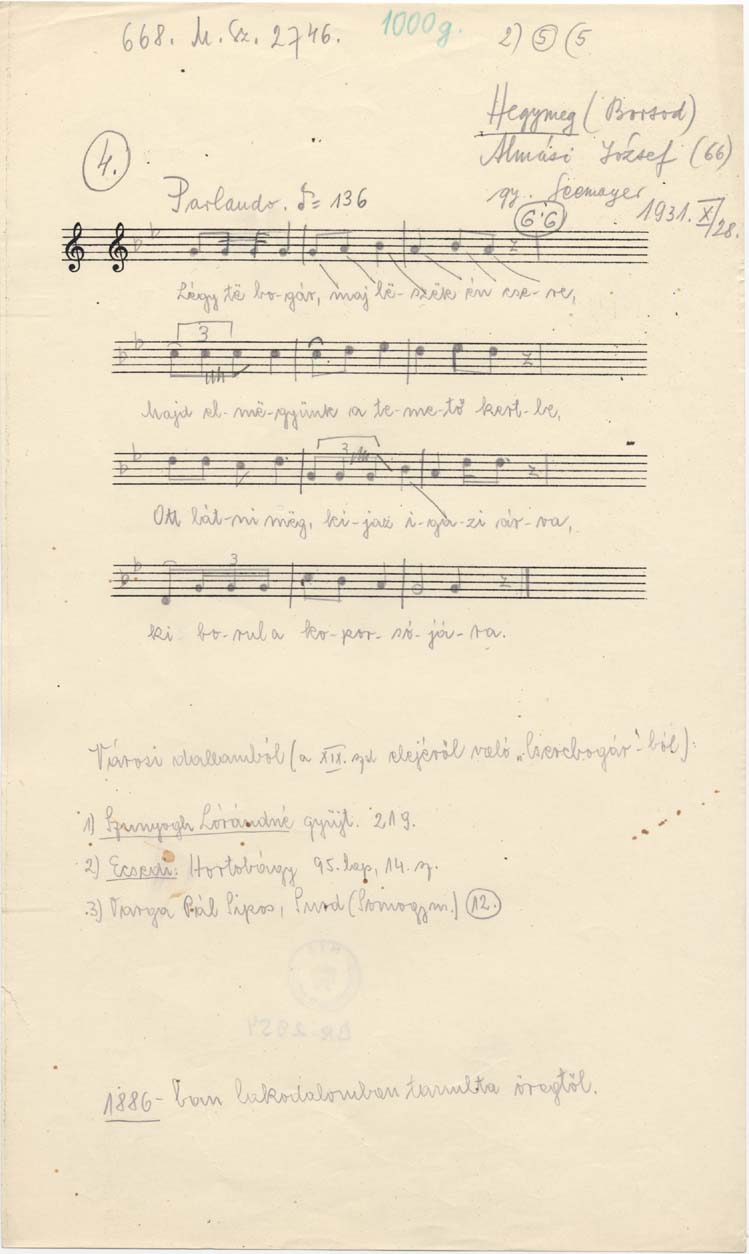 668. M. Sz. 2746. 1000 g. 2) 5 (5
Hegymeg (Borsod)
Almási József (66)
gy. Seemayer
1931. X/28.
4.
Parlando. ♪= 136
6·6
Légy të bo-gár, maj lë-szëk én cse-re,
3
Majd el-më-gyünk a te-me-tő kert-be,
3
Ott lát-ni mëg, ki-jaz i-ga-zi ár-va,
3
ki bo-rul a ko-por-só-já-ra.
Városi dallamból (a XIX. szd elejéről való „Cserebogár"-ból):
1) Szunyogh Lórándné gyüjt. 219.
2) Ecsedi: Hortobágy 95. lap, 14. sz.
3) Varga Pál Sipos, Surd (Somogym.) 12.
BR 2859
1886-ban lakodalomban tanulta öregtől.